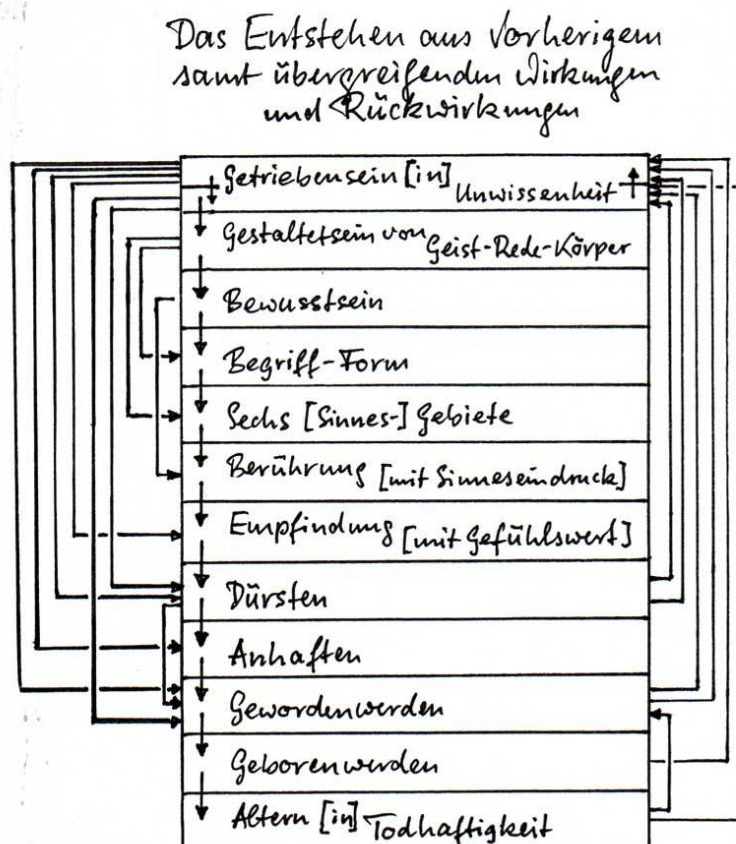 Das Entstehen aus Vorherigem
samt übergreifenden Wirkungen
und Rückwirkungen
Getriebensein [in] Unwissenheit
Gestaltetsein von Geist-Rede-Körper
Bewusstsein
Begriff-Form
Sechs [Sinnes-] Gebiete
Berührung [mit Sinneseindruck]
Empfindung [mit Gefühlswert]
Dürsten
Anhaften
Gewordenwerden
Geborenwerden
Altern [in] Todhaftigkeit